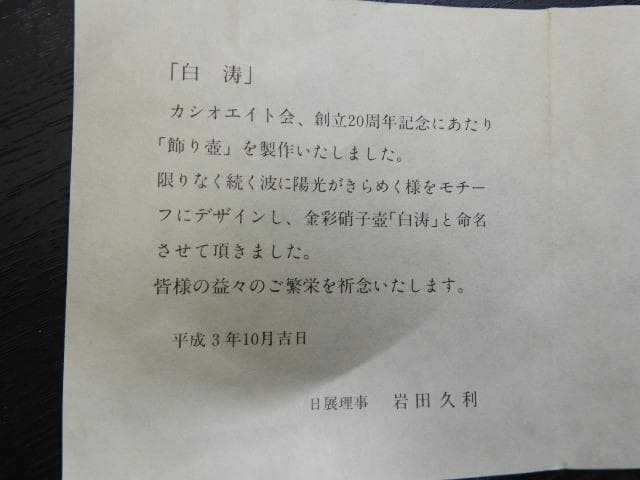 「白　涛」
カシオエイト会、創立20周年記念にあたり
「飾り壺」を製作いたしました。
限りなく続く波に陽光がきらめく様をモチー
フにデザインし、金彩硝子壺「白涛」と命名
させて頂きました。
皆様の益々のご繁栄を祈念いたします。
平成3年10月吉日
日展理事　岩田久利